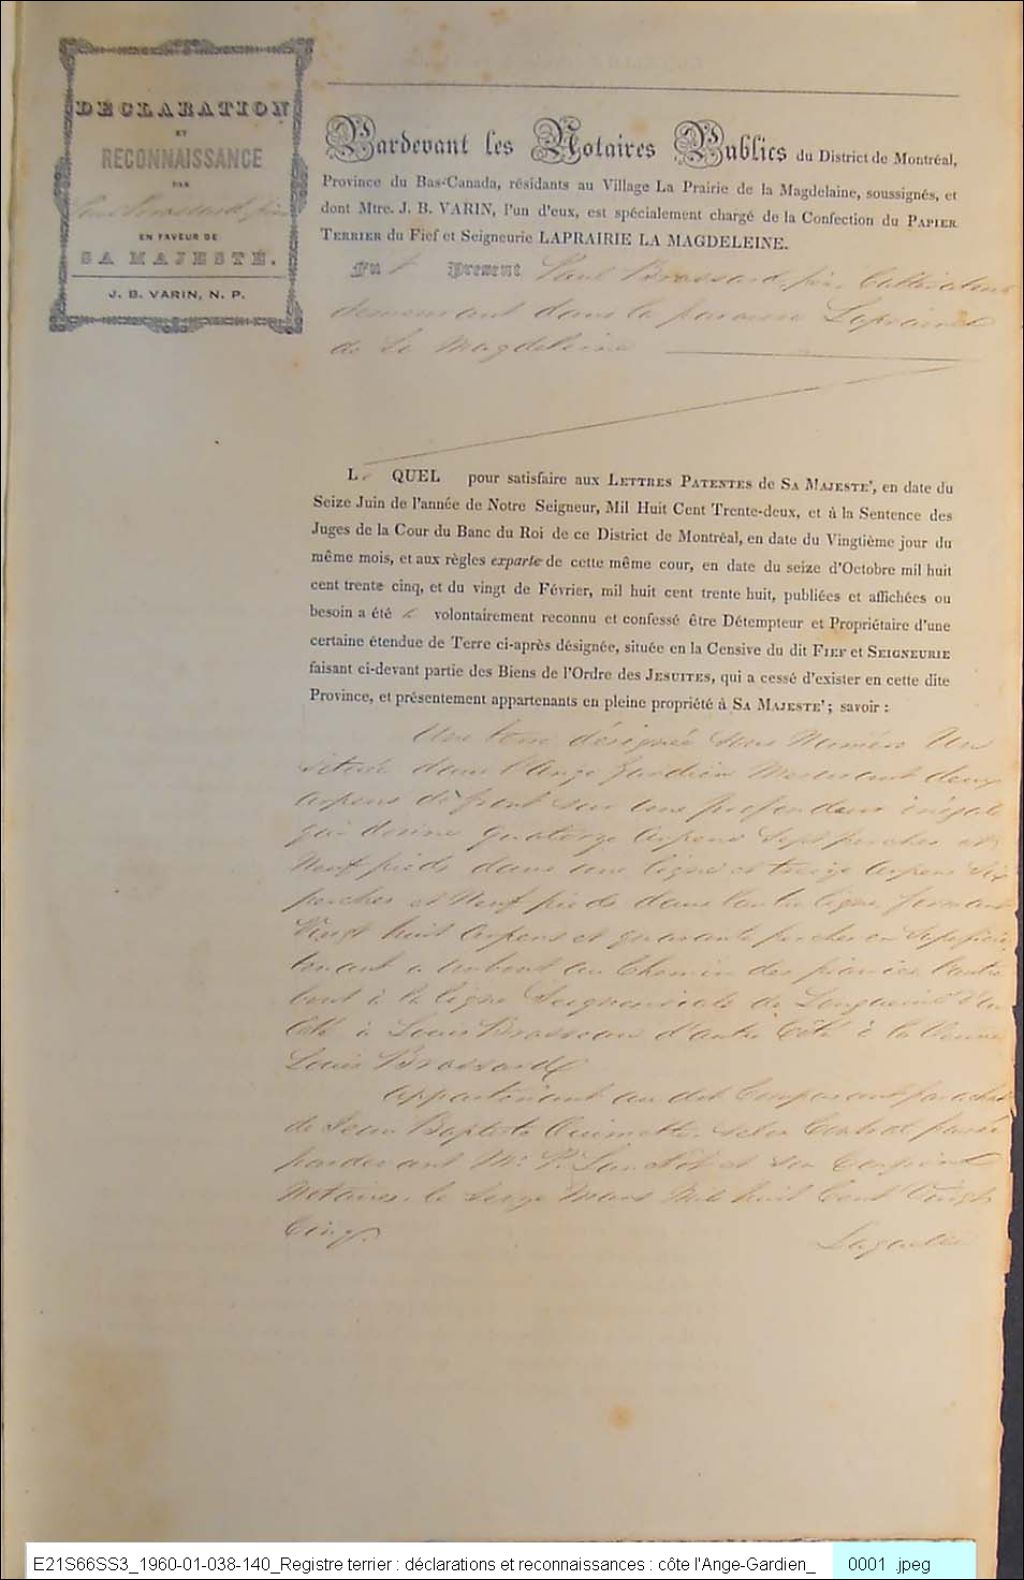 DÉCLARATION
ET
RECONNAISSANCE
PAR
Paul Brossard, père
EN FAVEUR DE
SA MAJESTÉ.
J. B. VARIN, N. P.
Pardevant les Notaires Publics du District de Montréal,
Province du Bas-Canada, résidants au Village La Prairie de la Magdelaine, soussignés, et
dont Mtre. J. B. VARIN, l'un d'eux, est spécialement chargé de la Confection du PAPIER
TERRIER du Fief et Seigneurie LAPRAIRIE LA MAGDELEINE.
Fut Present Paul Brossard, père, Cultivateur
demeurant dans la paroisse Laprairie
de La Magdeleine
Le QUEL pour satisfaire aux LETTRES PATENTES de SA MAJESTE', en date du
Seize Juin de l'année de Notre Seigneur, Mil Huit Cent Trente-deux, et à la Sentence des
Juges de la Cour du Banc du Roi de ce District de Montréal, en date du Vingtième jour du
même mois, et aux règles exparte de cette même cour, en date du seize d'Octobre mil huit
cent trente cinq, et du vingt de Février, mil huit cent trente huit, publiées et affichées ou
besoin a été volontairement reconnu et confessé être Détempteur et Propriétaire d'une
certaine étendue de Terre ci-après désignée, située en la Censive du dit FIEF et SEIGNEURIE
faisant ci-devant partie des Biens de l'Ordre des JESUITES, qui a cessé d'exister en cette dite
Province, et présentement appartenants en pleine propriété à SA MAJESTE'; savoir :
Une terre désignée sous Numéro Un
située dans l'Ange Gardien Mesurant deux
arpens de front sur une profondeur inégale
qui donne quatorze arpens sept perches et
Neuf pieds dans une ligne et treize arpens six
perches et Neuf pieds dans l'autre ligne formant
Vingt huit arpens et quarante perches en Superficie
tenant a un bout au Chemin des prairies l'autre
bout à la ligne Seigneuriale de Longueuil d'un
Côté à Louis Brosseau d'autre Côté à la Veuve
Louis Brossard
Appartenant au dit Comparant par achat
de Jean Baptiste Ouimette selon Contrat passé
pardevant Mr. P. Lanctôt et son Confrère
Notaires, le Seize Mars Mil huit Cent Vingt
Cinq.
Laquelle
E21S66SS3_1960-01-038-140_Registre terrier : déclarations et reconnaissances : côte l'Ange-Gardien_ 0001 .jpeg